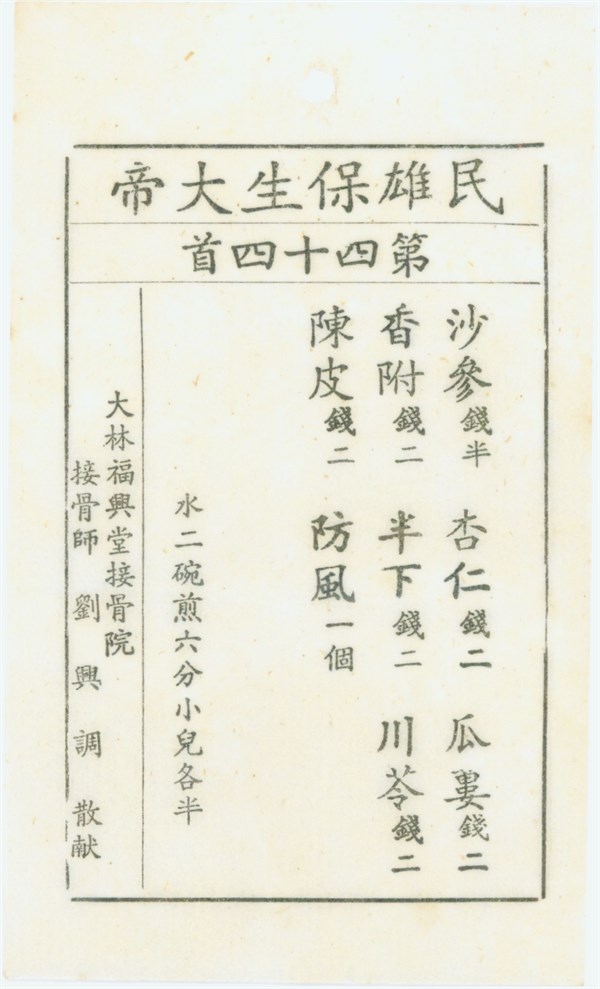 民雄保生大帝
第四十四首
沙參錢半 杏仁錢二 瓜婁錢二
香附錢二 半下錢二 川苓錢二
陳皮錢二 防風一個
水二碗煎六分小兒各半
大林福興堂接骨院
接骨師 劉興調 散献